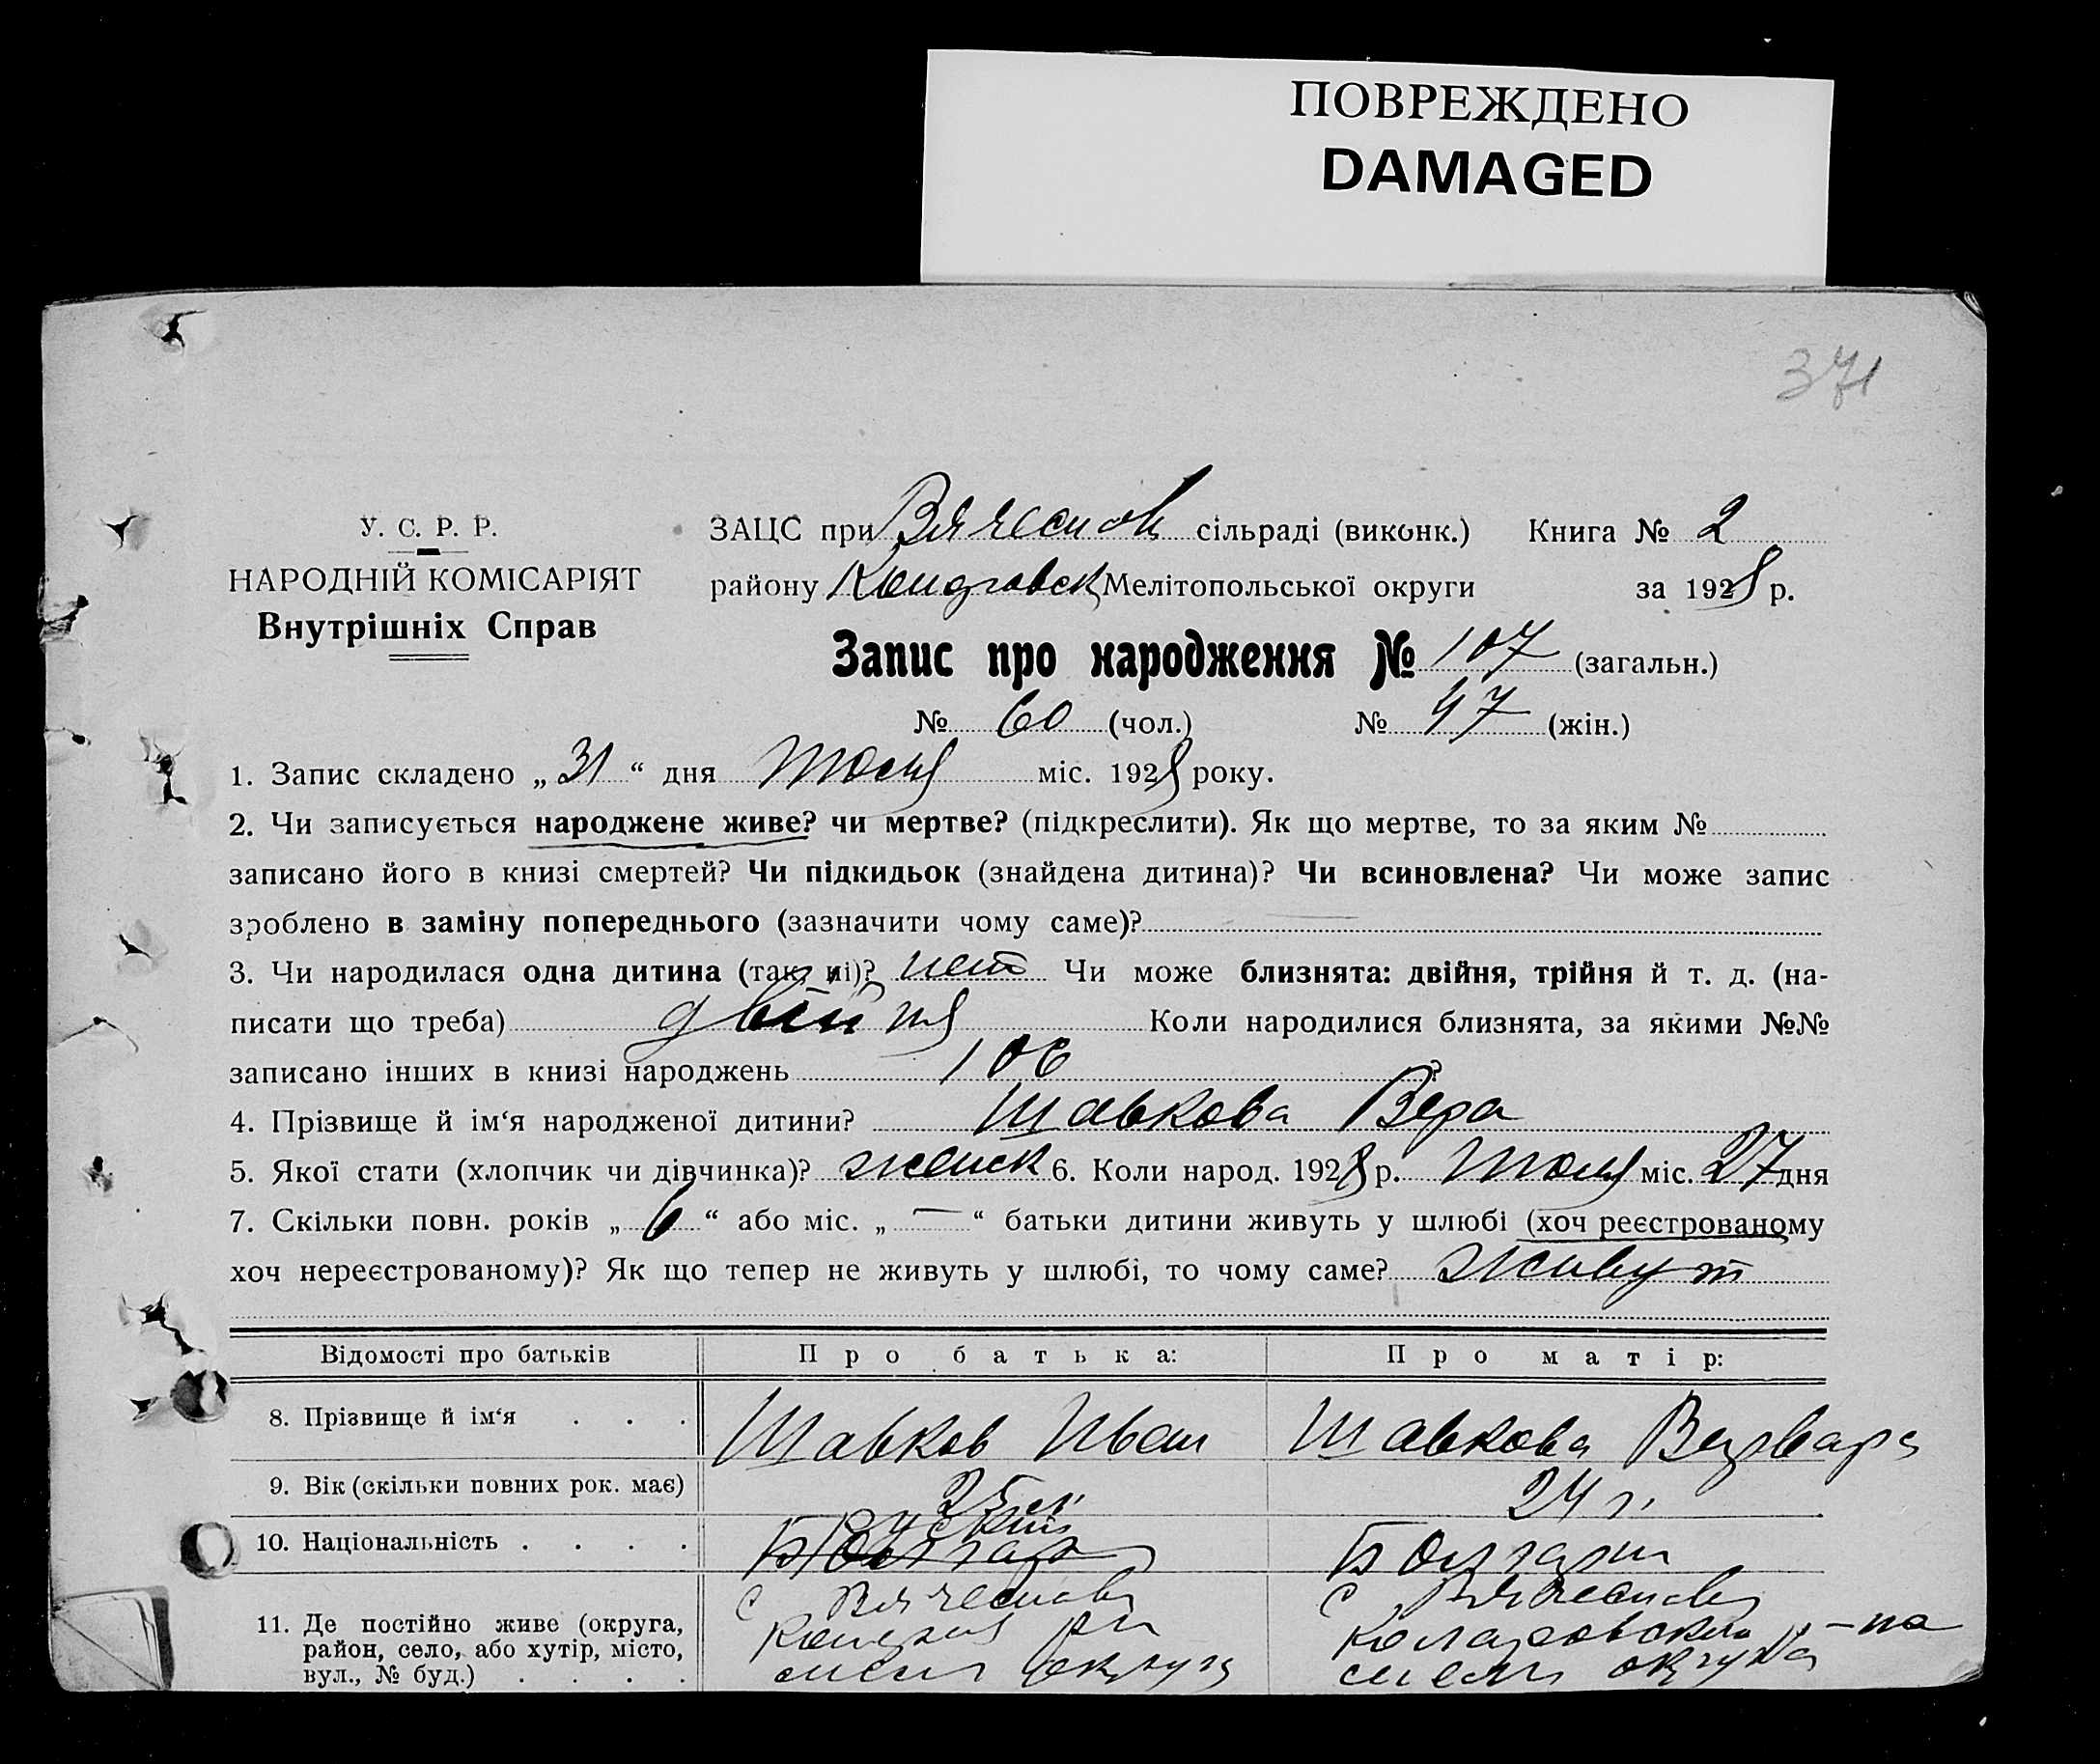 ПОВРЕЖДЕНО
DAMAGED
371
У. С. Р. Р.
НАРОДНІЙ КОМІСАРІЯТ
Внутрішніх Справ
ЗАЦС при сільраді (виконк.) Книга № 2
району Мелітопольської округи за 1928 р.
Запис про народження № 107 (загальн.)
№ 60 (чол.) № 47 (жін.)
1. Запис складено „ 31 “ дня Июля міс. 1928 року.
2. Чи записується народжене живе? чи мертве? (підкреслити). Як що мертве, то за яким №
записано його в книзі смертей? Чи підкидьок (знайдена дитина)? Чи всиновлена? Чи може запис
зроблено в заміну попереднього (зазначити чому саме)?
3. Чи народилася одна дитина (так, ні)? нет Чи може близнята: двійня, трійня й т. д. (на-
писати що треба) двійня Коли народилися близнята, за якими №№
записано інших в книзі народжень 106 ?
4. Прізвище й ім‘я народженої дитини? Шавкова Вера
5. Якої стати (хлопчик чи дівчинка)? женск 6. Коли народ. 1928 р. Июля міс. 27 дня
7. Скільки повн. років „ 6 “ або міс. „ — “ батьки дитини живуть у шлюбі (хоч реєстрованому
хоч нереєстрованому)? Як що тепер не живуть у шлюбі, то чому саме? живут
Відомості про батьків Про батька: Про матір:
8. Прізвище й ім‘я . . . Шавков Иван Шавкова Варвара
9. Вік (скільки повних рок. має) 25 24 г.
10. Національність . . . . Болгар Болгарка
11. Де постійно живе (округа,
район, село, або хутір, місто,
вул., № буд.) . . . .
с
с
р-на
округа